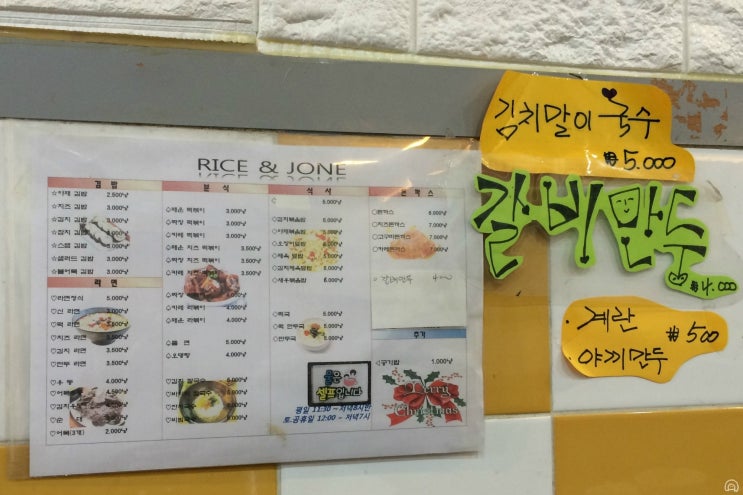 RICE & JONE
김밥
☆야채 김밥 2,500냥
☆치즈 김밥 3,000냥
☆김치 김밥 3,000냥
☆스팸 김밥 3,000냥
☆샐러드 김밥 3,000냥
☆불어묵 김밥 3,000냥
라면
♡라면정식 5,000냥
♡신 라면 3,000냥
♡떡 라면 3,500냥
♡치즈 라면 3,500냥
♡김치 라면 3,500냥
♡만두 라면 3,500냥
♡우동 4,000냥
♡어묵 4,500냥
♡김치우 4,500냥
♡순대
♡어묵(3개) 2,000냥
분식
◇매운 떡볶이 3,000냥
◇짜장 떡볶이 3,000냥
◇카레 떡볶이 3,000냥
◇매운 치즈 떡볶이 3,500냥
◇짜장 치즈 떡볶이 3,500냥
◇카레 치즈 떡볶이
◇짜장 라볶이 4,000냥
◇매운 라볶이 4,000냥
◇쫄면 5,000냥
◇오뎅탕 4,500냥
◇김치 칼국수
식사
5,000냥
◇김치볶음밥
◇야채볶음밥
◇오징어덮밥
◇제육 덮밥
◇김치제육덮밥
◇새우볶음밥 6,000냥
◇떡국 5,000냥
◇떡 만두국 5,500냥
◇만두국 5,500냥
물은
셀프입니다
평일 11:30 ~저녁8시반
토.공휴일 12:00 ~저녁7시
돈까스
◇돈까스 6,000냥
◇치즈돈까스 7,000냥
◇고구마돈까스 7,000냥
◇카레돈까스 7,000냥
◇갈비만두
추가
◇공기밥 1,000냥
Merry
Christmas
김치말이 국수
₩5.000
갈비만두
₩4.000
계란 ₩500
야끼만두